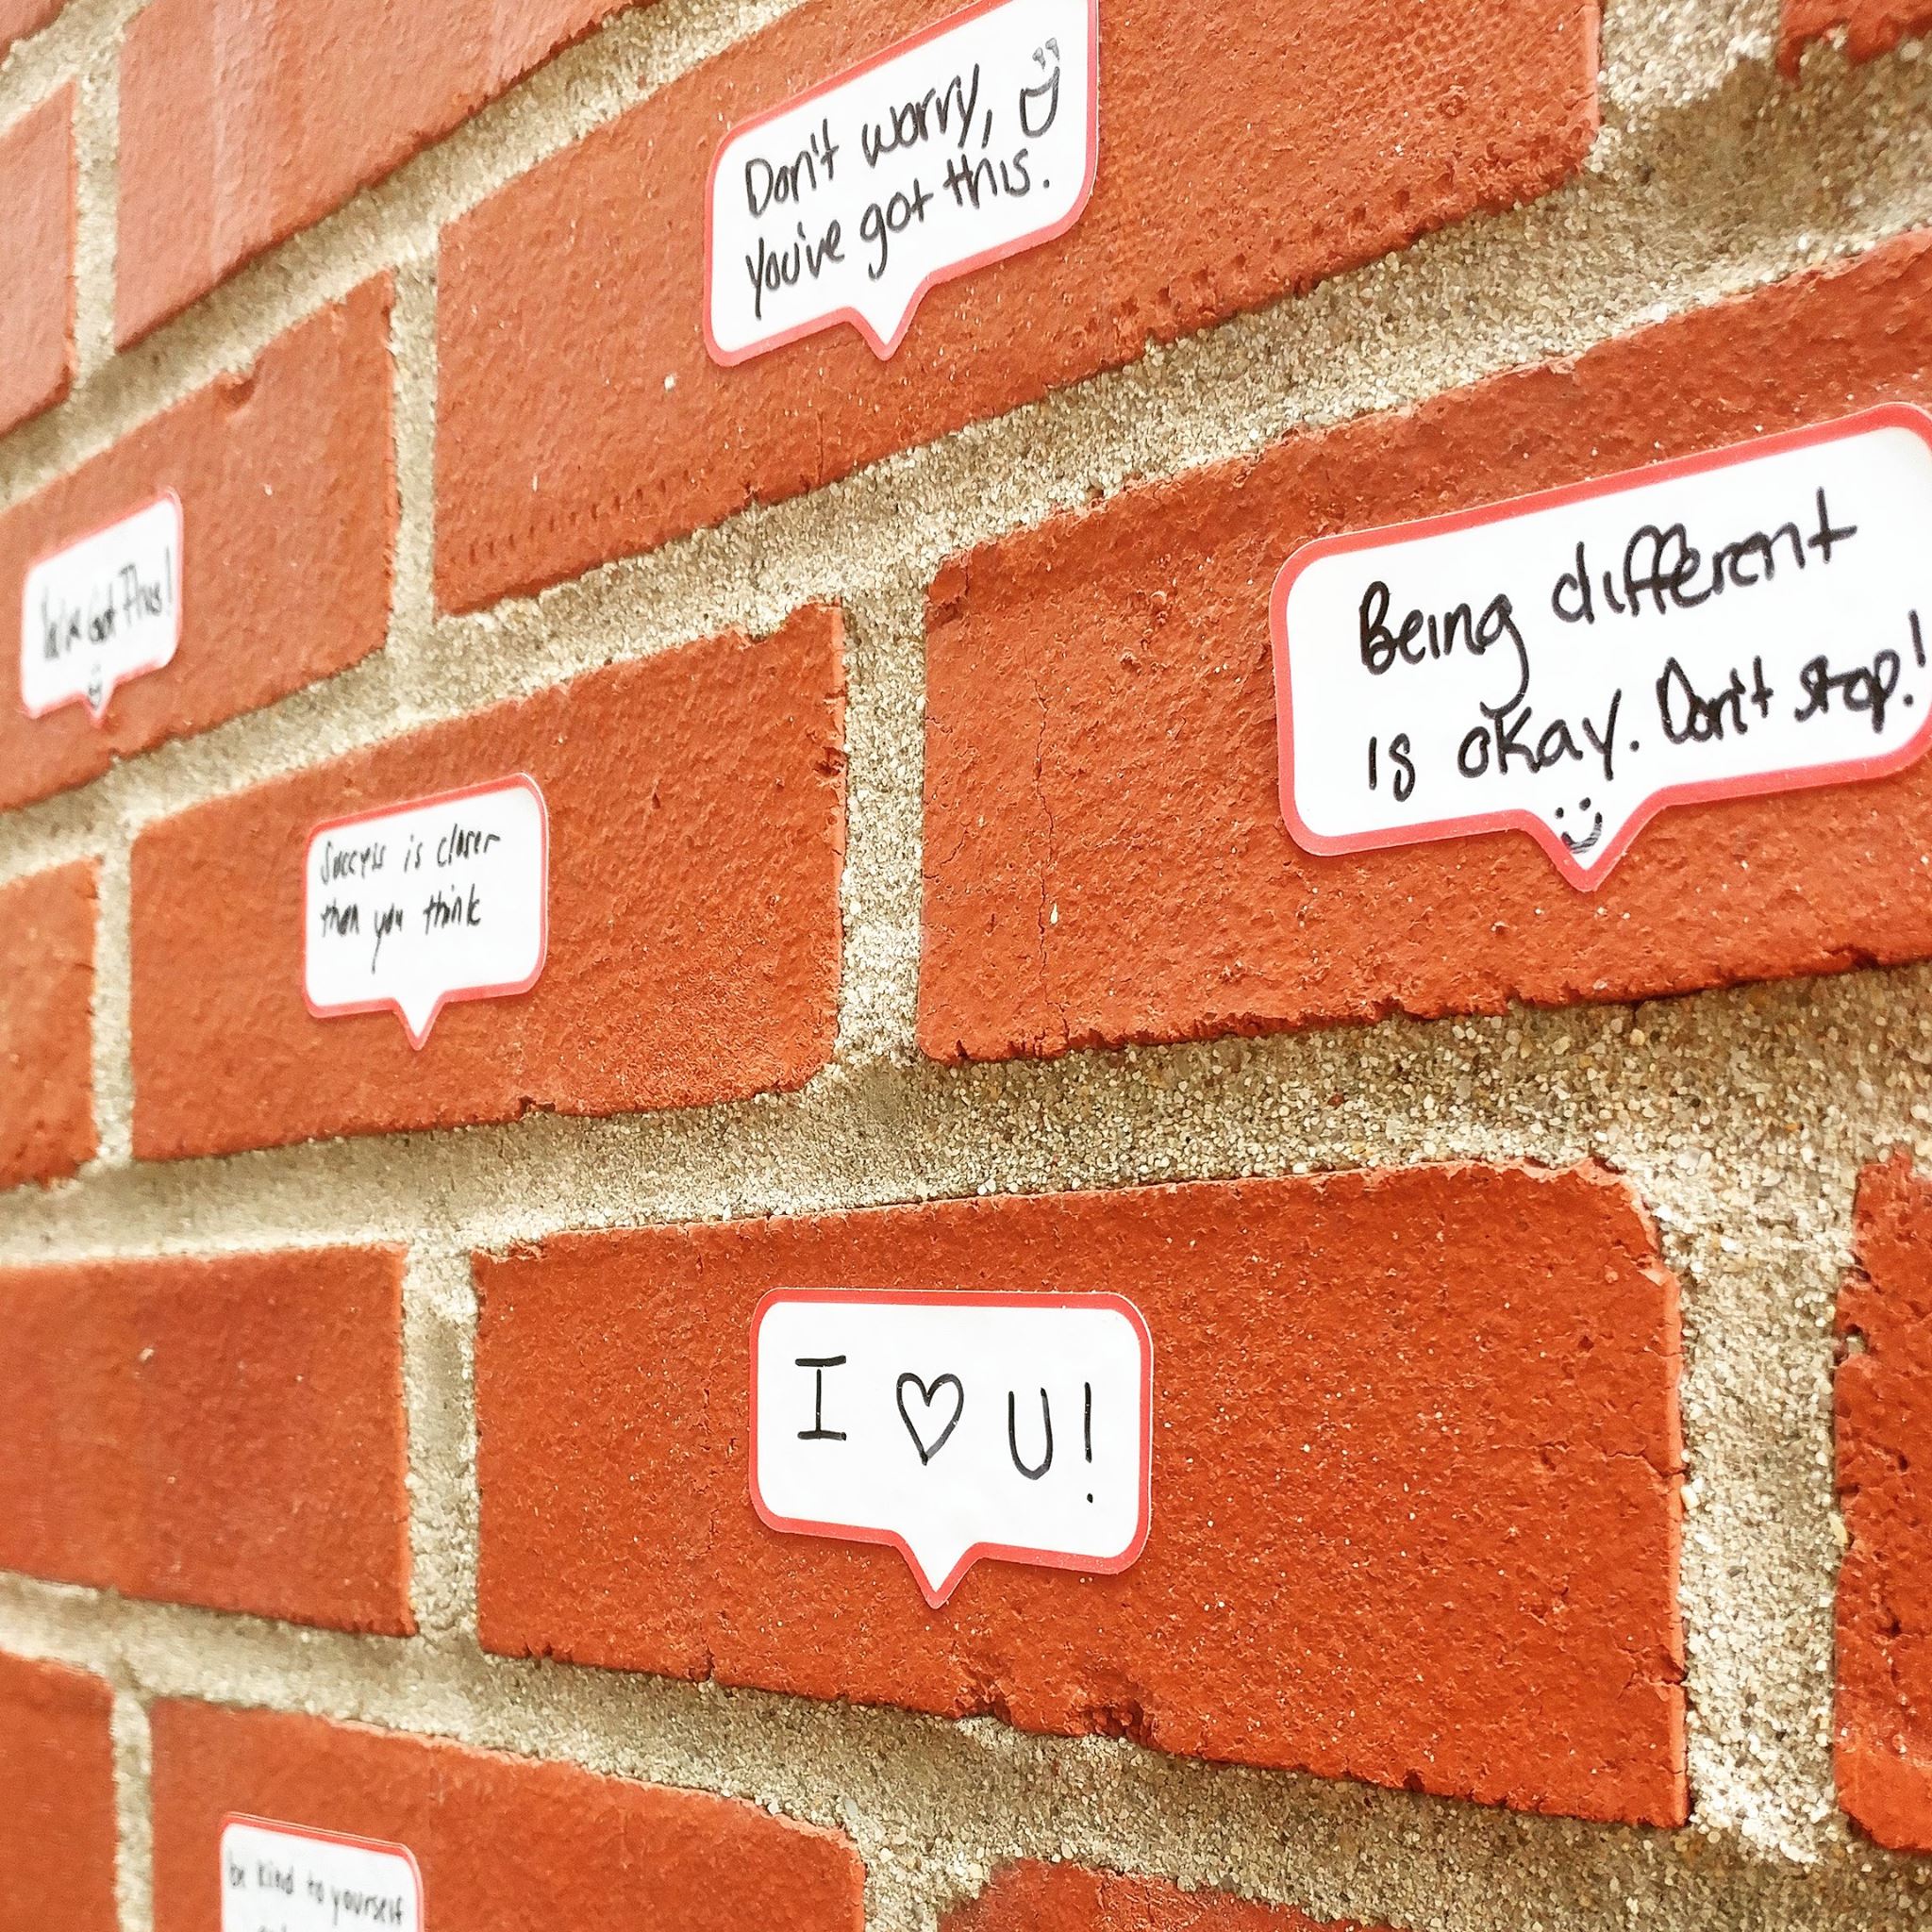 Don't worry,
you've got this.
Being different
is okay. Don't stop!
Got This!
Success is closer
than you think
I ♡ U!
be kind to yourself